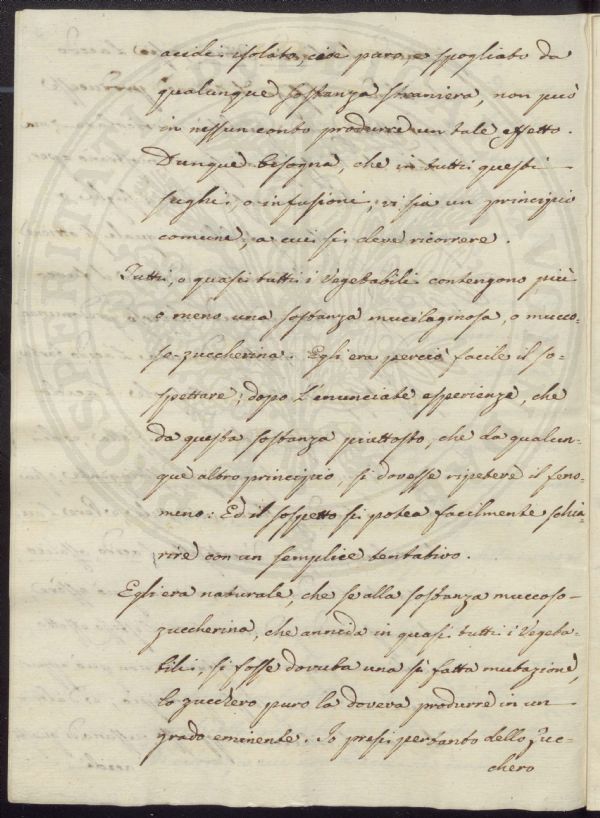 acido isolato, cioè puro, e spogliato da
qualunque sostanza straniera, non può
in nessun conto produrre un tale effetto.
Dunque bisogna, che in tutti questi
sughi, o infusioni, vi sia un principio
comune, a cui si deve ricorrere.
Tutti, o quasi tutti i Vegetabili contengono più
o meno una sostanza mucilaginosa, o mucco-
so-zuccherina. Egli era perciò facile il so-
spettare, dopo l'enunciate esperienze, che
da questa sostanza piuttosto, che da qualun-
que altro principio, si dovesse ripetere il feno-
meno: Ed il sospetto si potea facilmente schia-
rire con un semplice tentativo.
Egli era naturale, che se alla sostanza muccoso-
zuccherina, che annida in quasi tutti i Vegeta-
bili, si fosse dovuta una sì fatta mutazione,
lo zucchero puro la dovea produrre in un
grado eminente. Io presi pertanto dello Zuc-
chero